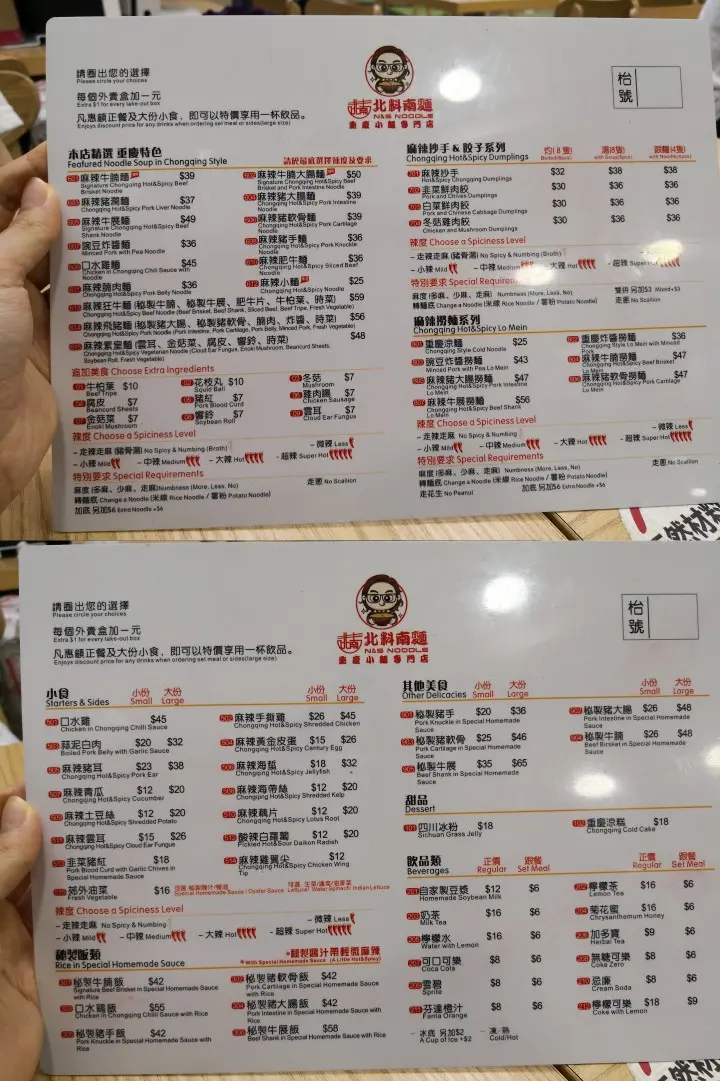 請圈出您的選擇
Please circle your choices
每個外賣盒加一元
Extra $1 for every take-out box
凡惠顧正餐及大份小食，即可以特價享用一杯飲品。
Enjoys discount price for any drinks when ordering set meal or sides(large size)
北斜南麵
N&S NOODLE
重慶小麵專門店
枱號
本店精選 重慶特色
Featured Noodle Soup in Chongqing Style
請於最底選擇辣度及要求
麻辣牛腩麵 $39
Signature Chongqing Hot&Spicy Beef Brisket Noodle
麻辣豬潤麵 $37
Chongqing Hot&Spicy Pork Liver Noodle
麻辣牛展麵 $49
Signature Chongqing Hot&Spicy Beef Shank Noodle
豌豆炸醬麵 $36
Minced Pork with Pea Noodle
口水雞麵 $45
Chicken in Chongqing Chili Sauce with Noodle
麻辣腩肉麵 $36
Chongqing Hot&Spicy Pork Belly Noodle
麻辣牛腩大腸麵 $50
Signature Chongqing Hot&Spicy Beef Brisket and Pork Intestine Noodle
麻辣豬大腸麵 $39
Chongqing Hot&Spicy Pork Intestine Noodle
麻辣軟骨麵 $39
Chongqing Hot&Spicy Pork Cartilage Noodle
麻辣豬手麵 $36
Chongqing Hot&Spicy Pork Knuckle Noodle
麻辣肥牛麵 $36
Chongqing Hot&Spicy Sliced Beef Noodle
麻辣小麵 $25
Chongqing Hot&Spicy Noodle
麻辣狂牛麵 (秘製牛腩、秘製牛展、肥牛片、牛柏葉、時菜) $59
Chongqing Hot&Spicy Beef Noodle (Beef Brisket, Beef Shank, Sliced Beef, Beef Tripe, Fresh Vegetable)
麻辣飛豬麵 (秘製豬大腸、秘製豬軟骨、腩肉、炸醬、時菜) $56
Chongqing Hot&Spicy Pork Noodle (Pork Intestine, Pork Cartilage, Pork Belly, Minced Pork, Fresh Vegetable)
麻辣素皇麵 (雲耳、金菇菜、腐皮、響鈴、時菜) $48
Chongqing Hot&Spicy Vegetarian Noodle (Cloud Ear Fungus, Enoki Mushroom, Beancurd Sheets, Soybean Roll, Fresh Vegetable)
追加美食 Choose Extra Ingredients
牛柏葉 $10
Beef Tripe
腐皮 $7
Beancurd Sheets
金菇菜 $7
Enoki Mushroom
花枝丸 $10
Squid Ball
豬紅 $7
Pork Blood Curd
響鈴 $7
Soybean Roll
冬菇 $7
Mushroom
雞肉腸 $7
Chicken Sausage
雲耳 $7
Cloud Ear Fungus
辣度 Choose a Spiciness Level
– 走辣走麻 (豬骨湯) No Spicy & Numbing (Broth)
– 微辣 Less
– 小辣 Mild – 中辣 Medium – 大辣 Hot – 超辣 Super Hot
特別要求 Special Requirements
麻度 (多麻、少麻、走麻) Numbness (More, Less, No)
走蔥 No Scallion
轉麵底 Change a Noodle (米線 Rice Noodle / 薯粉 Potato Noodle)
加底 另加$6 Extra Noodle +$6
麻辣抄手 & 餃子系列
Chongqing Hot&Spicy Dumplings
灼(8隻) 湯(8隻) 跟麵(4隻)
Boiled(8pcs) with Soup(8pcs) with Noodle(4pcs)
麻辣抄手 $32 $38 $38
Hot&Spicy Chongqing Dumplings
韭菜鮮肉餃 $30 $36 $36
Pork and Chives Dumplings
白菜鮮肉餃 $30 $36 $36
Pork and Chinese Cabbage Dumplings
冬菇雞肉餃 $30 $36 $36
Chicken and Mushroom Dumplings
辣度 Choose a Spiciness Level
– 走辣走麻 (豬骨湯) No Spicy & Numbing (Broth)
– 微辣 Less
– 小辣 Mild – 中辣 Medium – 大辣 Hot – 超辣 Super Hot
特別要求 Special Requirements
麻度 (多麻、少麻、走麻) Numbness (More, Less, No)
雙拼 另加$3 Mixed+$3
轉麵底 Change a Noodle (米線 Rice Noodle / 薯粉 Potato Noodle)
走蔥 No Scallion
麻辣撈麵系列
Chongqing Hot&Spicy Lo Mein
重慶涼麵 $25
Chongqing Style Cold Noodle
豌豆炸醬撈麵 $43
Minced Pork with Pea Lo Mein
麻辣豬大腸撈麵 $47
Chongqing Hot&Spicy Pork Intestine Lo Mein
麻辣牛展撈麵 $56
Chongqing Hot&Spicy Beef Shank Lo Mein
重慶炸醬撈麵 $36
Chongqing Style Lo Mein with Minced Pork
麻辣牛腩撈麵 $47
Chongqing Hot&Spicy Beef Brisket Lo Mein
麻辣豬軟骨撈麵 $47
Chongqing Hot&Spicy Pork Cartilage Lo Mein
辣度 Choose a Spiciness Level
– 走辣走麻 No Spicy & Numbing
– 微辣 Less
– 小辣 Mild – 中辣 Medium – 大辣 Hot – 超辣 Super Hot
特別要求 Special Requirements
麻度 (多麻、少麻、走麻) Numbness (More, Less, No)
走蔥 No Scallion
轉麵底 Change a Noodle (米線 Rice Noodle / 薯粉 Potato Noodle)
走花生 No Peanut
加底 另加$6 Extra Noodle +$6
請圈出您的選擇
Please circle your choices
每個外賣盒加一元
Extra $1 for every take-out box
凡惠顧正餐及大份小食，即可以特價享用一杯飲品。
Enjoys discount price for any drinks when ordering set meal or sides(large size)
北斜南麵
N&S NOODLE
重慶小麵專門店
枱號
小食
Starters & Sides
小份 大份
Small Large
口水雞 $45
Chicken in Chongqing Chilli Sauce
蒜泥白肉 $20 $32
Boiled Pork Belly with Garlic Sauce
麻辣豬耳 $23 $38
Chongqing Hot&Spicy Pork Ear
麻辣青瓜 $12 $20
Chongqing Hot&Spicy Cucumber
麻辣土豆絲 $12 $20
Chongqing Hot&Spicy Shredded Potato
麻辣雲耳 $15 $26
Chongqing Hot&Spicy Cloud Ear Fungus
韭菜豬紅 $18
Pork Blood Curd with Garlic Chives in Special Homemade Sauce
郊外油菜 $16
Fresh Vegetable
小份 大份
Small Large
麻辣手撕雞 $26 $45
Chongqing Hot&Spicy Shredded Chicken
麻辣黃金皮蛋 $15 $26
Chongqing Hot&Spicy Century Egg
麻辣海蜇 $18 $32
Chongqing Hot&Spicy Jellyfish
麻辣海帶絲 $12 $20
Chongqing Hot&Spicy Shredded Kelp
麻辣藕片 $12 $20
Chongqing Hot&Spicy Lotus Root
酸辣白蘿蔔 $12 $20
Pickled Hot&Sour Daikon Radish
麻辣雞翼尖 $12
Chongqing Hot&Spicy Chicken Wing Tip
Special Homemade Sauce / Oyster Sauce
Lettuce/ Water Spinach/ Indian Lettuce
辣度 Choose a Spiciness Level
– 走辣走麻 No Spicy & Numbing
– 微辣 Less
– 小辣 Mild – 中辣 Medium – 大辣 Hot – 超辣 Super Hot
秘製飯類
Rice in Special Homemade Sauce
*秘製醬汁帶輕微麻辣
*With Special Homemade Sauce (A Little Hot&Spicy)
秘製牛腩飯 $42
Signature Beef Brisket in Special Homemade Sauce with Rice
口水雞飯 $55
Chicken in Chongqing Chilli Sauce with Rice
秘製豬手飯 $42
Pork Knuckle in Special Homemade Sauce with Rice
秘製豬軟骨飯 $42
Pork Cartilage in Special Homemade Sauce with Rice
秘製豬大腸飯 $42
Pork Intestine in Special Homemade Sauce with Rice
秘製牛展飯 $58
Beef Shank in Special Homemade Sauce with Rice
其他美食
Other Delicacies
小份 大份
Small Large
秘製豬手 $20 $36
Pork Knuckle in Special Homemade Sauce
秘製豬軟骨 $25 $46
Pork Cartilage in Special Homemade Sauce
秘製牛展 $35 $65
Beef Shank in Special Homemade Sauce
小份 大份
Small Large
秘製豬大腸 $26 $48
Pork Intestine in Special Homemade Sauce
秘製牛腩 $26 $48
Beef Birsket in Special Homemade Sauce
甜品
Dessert
四川冰粉 $18
Sichuan Grass Jelly
重慶涼糕 $18
Chongqing Cold Cake
飲品類
Beverages
正價 跟餐
Regular Set Meal
自家製豆漿 $12 $6
Homemade Soybean Milk
奶茶 $16 $6
Milk Tea
檸檬水 $16 $6
Water with Lemon
可口可樂 $8 $6
Coca Cola
雪碧 $8 $6
Sprite
芬達橙汁 $8 $6
Fanta Orange
正價 跟餐
Regular Set Meal
檸檬茶 $16 $6
Lemon Tea
菊花蜜 $16 $6
Chrysanthemum Honey
加多寶 $9 $6
Herbal Tea
無糖可樂 $8 $6
Coke Zero
忌廉 $8 $6
Cream Soda
檸檬可樂 $18 $9
Coke with Lemon
– 冰底 另加$2 – 凍/熱
A Cup of Ice +$2 Cold/Hot